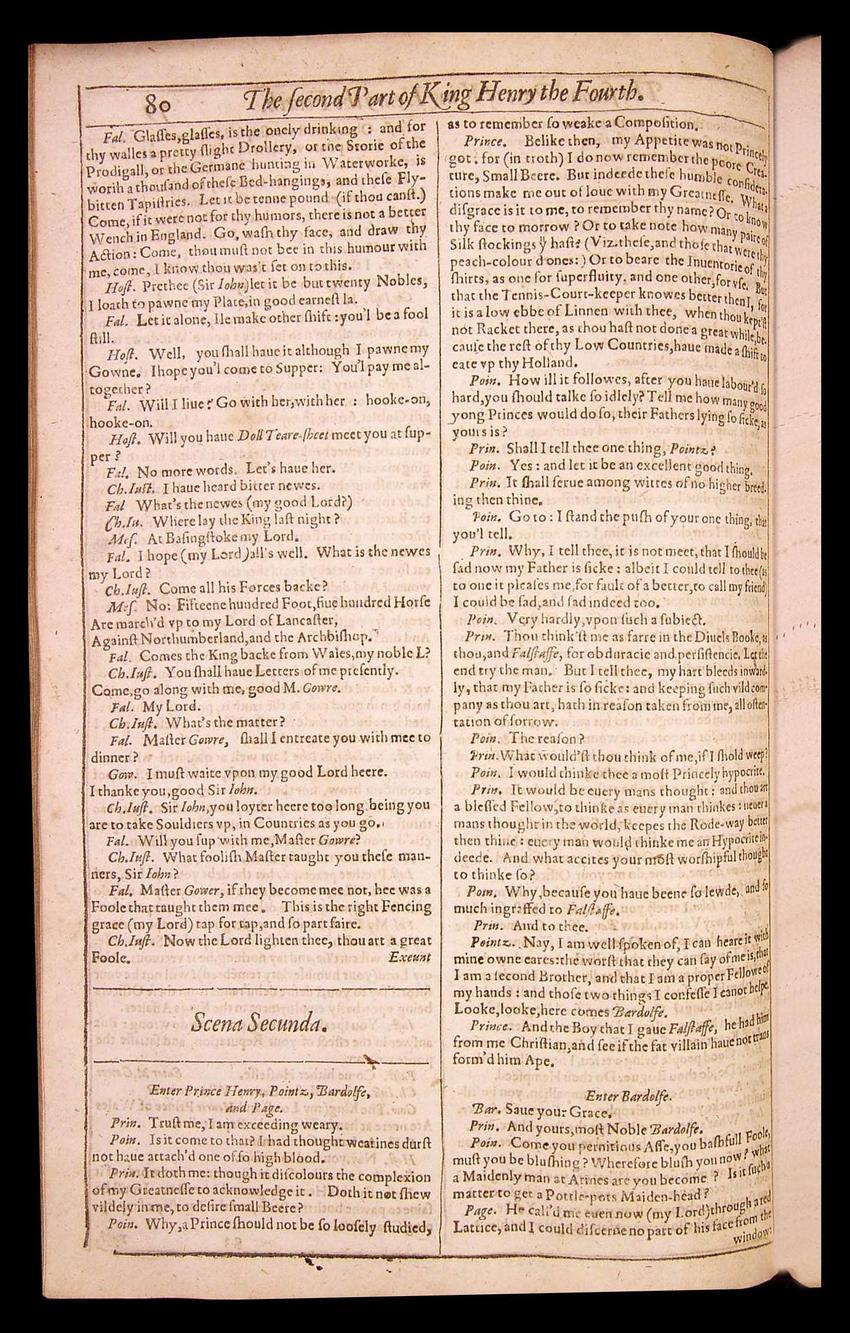 80
The second Part of King Henry the Fourth.
Fal. Glasses,glasses, is the onely drinking : and for
thy walles a pretty slight Drollery, or the Storie of the
Prodigall, or the Germane hunting in Waterworke, is
worth a thousand of these Bed-hangings, and these Fly-
bitten Tapistries. Let it be tenne pound (if thou canst.)
Come, if it were not for thy humors, there is not a better
Wench in England. Go, wash thy face, and draw thy
Action: Come, thou must not bee in this humour with
me, come, I know thou was't set on to this.
Host. Prethee (Sir Iohn)let it be but twenty Nobles,
I loath to pawne my Plate, in good earnest la.
Fal. Let it alone, Ile make other shift : you'l be a fool
still.
Host. Well, you shall haue it although I pawne my
Gowne. I hope you'l come to Supper: You'l pay me al-
together?
Fal. Will I liue? Go with her, with her : hooke-on,
hooke-on.
Host. Will you haue Doll Teare-sheet meet you at sup-
per?
Fal. No more words. Let's haue her.
Ch.Iust. I haue heard bitter newes.
Fal What's the newes (my good Lord?)
Ch.Iu. Where lay the King last night?
Mes. At Basingstoke my Lord.
Fal. I hope (my Lord)all's well. What is the newes
my Lord?
Ch.Iust. Come all his Forces backe?
Mes. No: Fifteene hundred Foot, fiue hundred Horse
Are march'd vp to my Lord of Lancaster,
Against Northumberland,and the Archbishop.
Fal. Comes the King backe from Wales,my noble L?
Ch.Iust. You shall haue Letters of me presently.
Come,go along with me, good M. Gowre.
Fal. My Lord.
Ch.Iust. What's the matter?
Fal. Master Gowre, shall I entreate you with mee to
dinner?
Gow. I must waite vpon my good Lord heere.
I thanke you,good Sir Iohn.
Ch.Iust. Sir Iohn,you loyter heere too long being you
are to take Souldiers vp, in Countries as you go.
Fal. Will you sup with me,Master Gowre?
Ch.Iust. What foolish Master taught you these man-
ners, Sir Iohn?
Fal. Master Gower, if they become mee not, hee was a
Foole that taught them mee. This is the right Fencing
grace (my Lord) tap for tap,and so part faire.
Ch.Iust. Now the Lord lighten thee, thou art a great
Foole. Exeunt
Scena Secunda.
Enter Prince Henry, Pointz, Bardolfe,
and Page.
Prin. Trust me, I am exceeding weary.
Poin. Is it come to that? I had thought wearines durst
not haue attach'd one of so high blood.
Prin. It doth me: though it discolours the complexion
of my Greatnesse to acknowledge it. Doth it not shew
vildely in me, to desire small Beere?
Poin. Why,a Prince should not be so loosely studied,
as to remember so weake a Composition.
Prince. Belike then, my Appetite was not Princely
got: for (in troth) I do now remember the poore Crea-
ture, Small Beere. But indeede these humble considera-
tions make me out of loue with my Greatnesse. What a
disgrace is it to me, to remember thy name? Or to know
thy face to morrow? Or to take note how many paire of
Silk stockings yͧ hast? (Viz. these,and those that were thy
peach-colour'd ones:) Or to beare the Inuentorie of thy
shirts, as one for superfluity, and one other, for vse. But
that the Tennis-Court-keeper knowes better then I, for
it is a low ebbe of Linnen with thee, when thou kept'st
not Racket there, as thou hast not done a great while, be-
cause the rest of thy Low Countries,haue made a shift to
eate vp thy Holland.
Poin. How ill it followes, after you haue labour'd so
hard,you should talke so idlely? Tell me how many good
yong Princes would do so, their Fathers lying so sicke, as
yours is?
Prin. Shall I tell thee one thing, Pointz?
Poin. Yes: and let it be an excellent good thing.
Prin. It shall serue among wittes of no higher breed-
ing then thine.
Poin. Go to: I stand the push of your one thing, that
you'l tell.
Prin. Why, I tell thee, it is not meet, that I should be
sad now my Father is sicke: albeit I could tell to thee (as
to one it pleases me,for fault of a better,to call my friend)
I could be sad,and sad indeed too.
Poin. Very hardly,vpon such a subiect.
Prin. Thou think'st me as farre in the Diuels Booke, as
thou,and Falstaffe, for obduracie and persistencie. Let the
end try the man. But I tell thee, my hart bleeds inward-
ly, that my Father is so sicke: and keeping such vild com-
pany as thou art, hath in reason taken from me, all osten-
tation of sorrow.
Poin. The reason?
Prin. What would'st thou think of me,if I shold weep?
Poin. I would thinke thee a most Princely hypocrite.
Prin. It would be euery mans thought: and thou art
a blessed Fellow,to thinke as euery man thinkes: neuer a
mans thought in the world, keepes the Rode-way better
then thine: euery man would thinke me an Hypocrite in-
deede. And what accites your most worshipful thought
to thinke so?
Poin. Why,because you haue beene so lewde, and so
much ingraffed to Falstaffe.
Prin. And to thee.
Pointz. Nay, I am well spoken of, I can heare it with
mine owne eares: the worst that they can say of me is, that
I am a second Brother, and that I am a proper Fellowe of
my hands: and those two things I confesse I canot helpe.
Looke,looke,here comes Bardolfe.
Prince. And the Boy that I gaue Falstaffe, he had him
from me Christian,and see if the fat villain haue not trans
form'd him Ape.
Enter Bardolfe.
Bar. Saue your Grace.
Prin. And yours,most Noble Bardolfe.
Poin. Come you pernitious Asse,you bashfull Foole,
must you be blushing? Wherefore blush you now? what
a Maidenly man at Armes are you become? Is it such a
matter to get a Pottle-pots Maiden-head?
Page. He call'd me euen now (my Lord)through a red
Lattice, and I could discerne no part of his face from the
window: